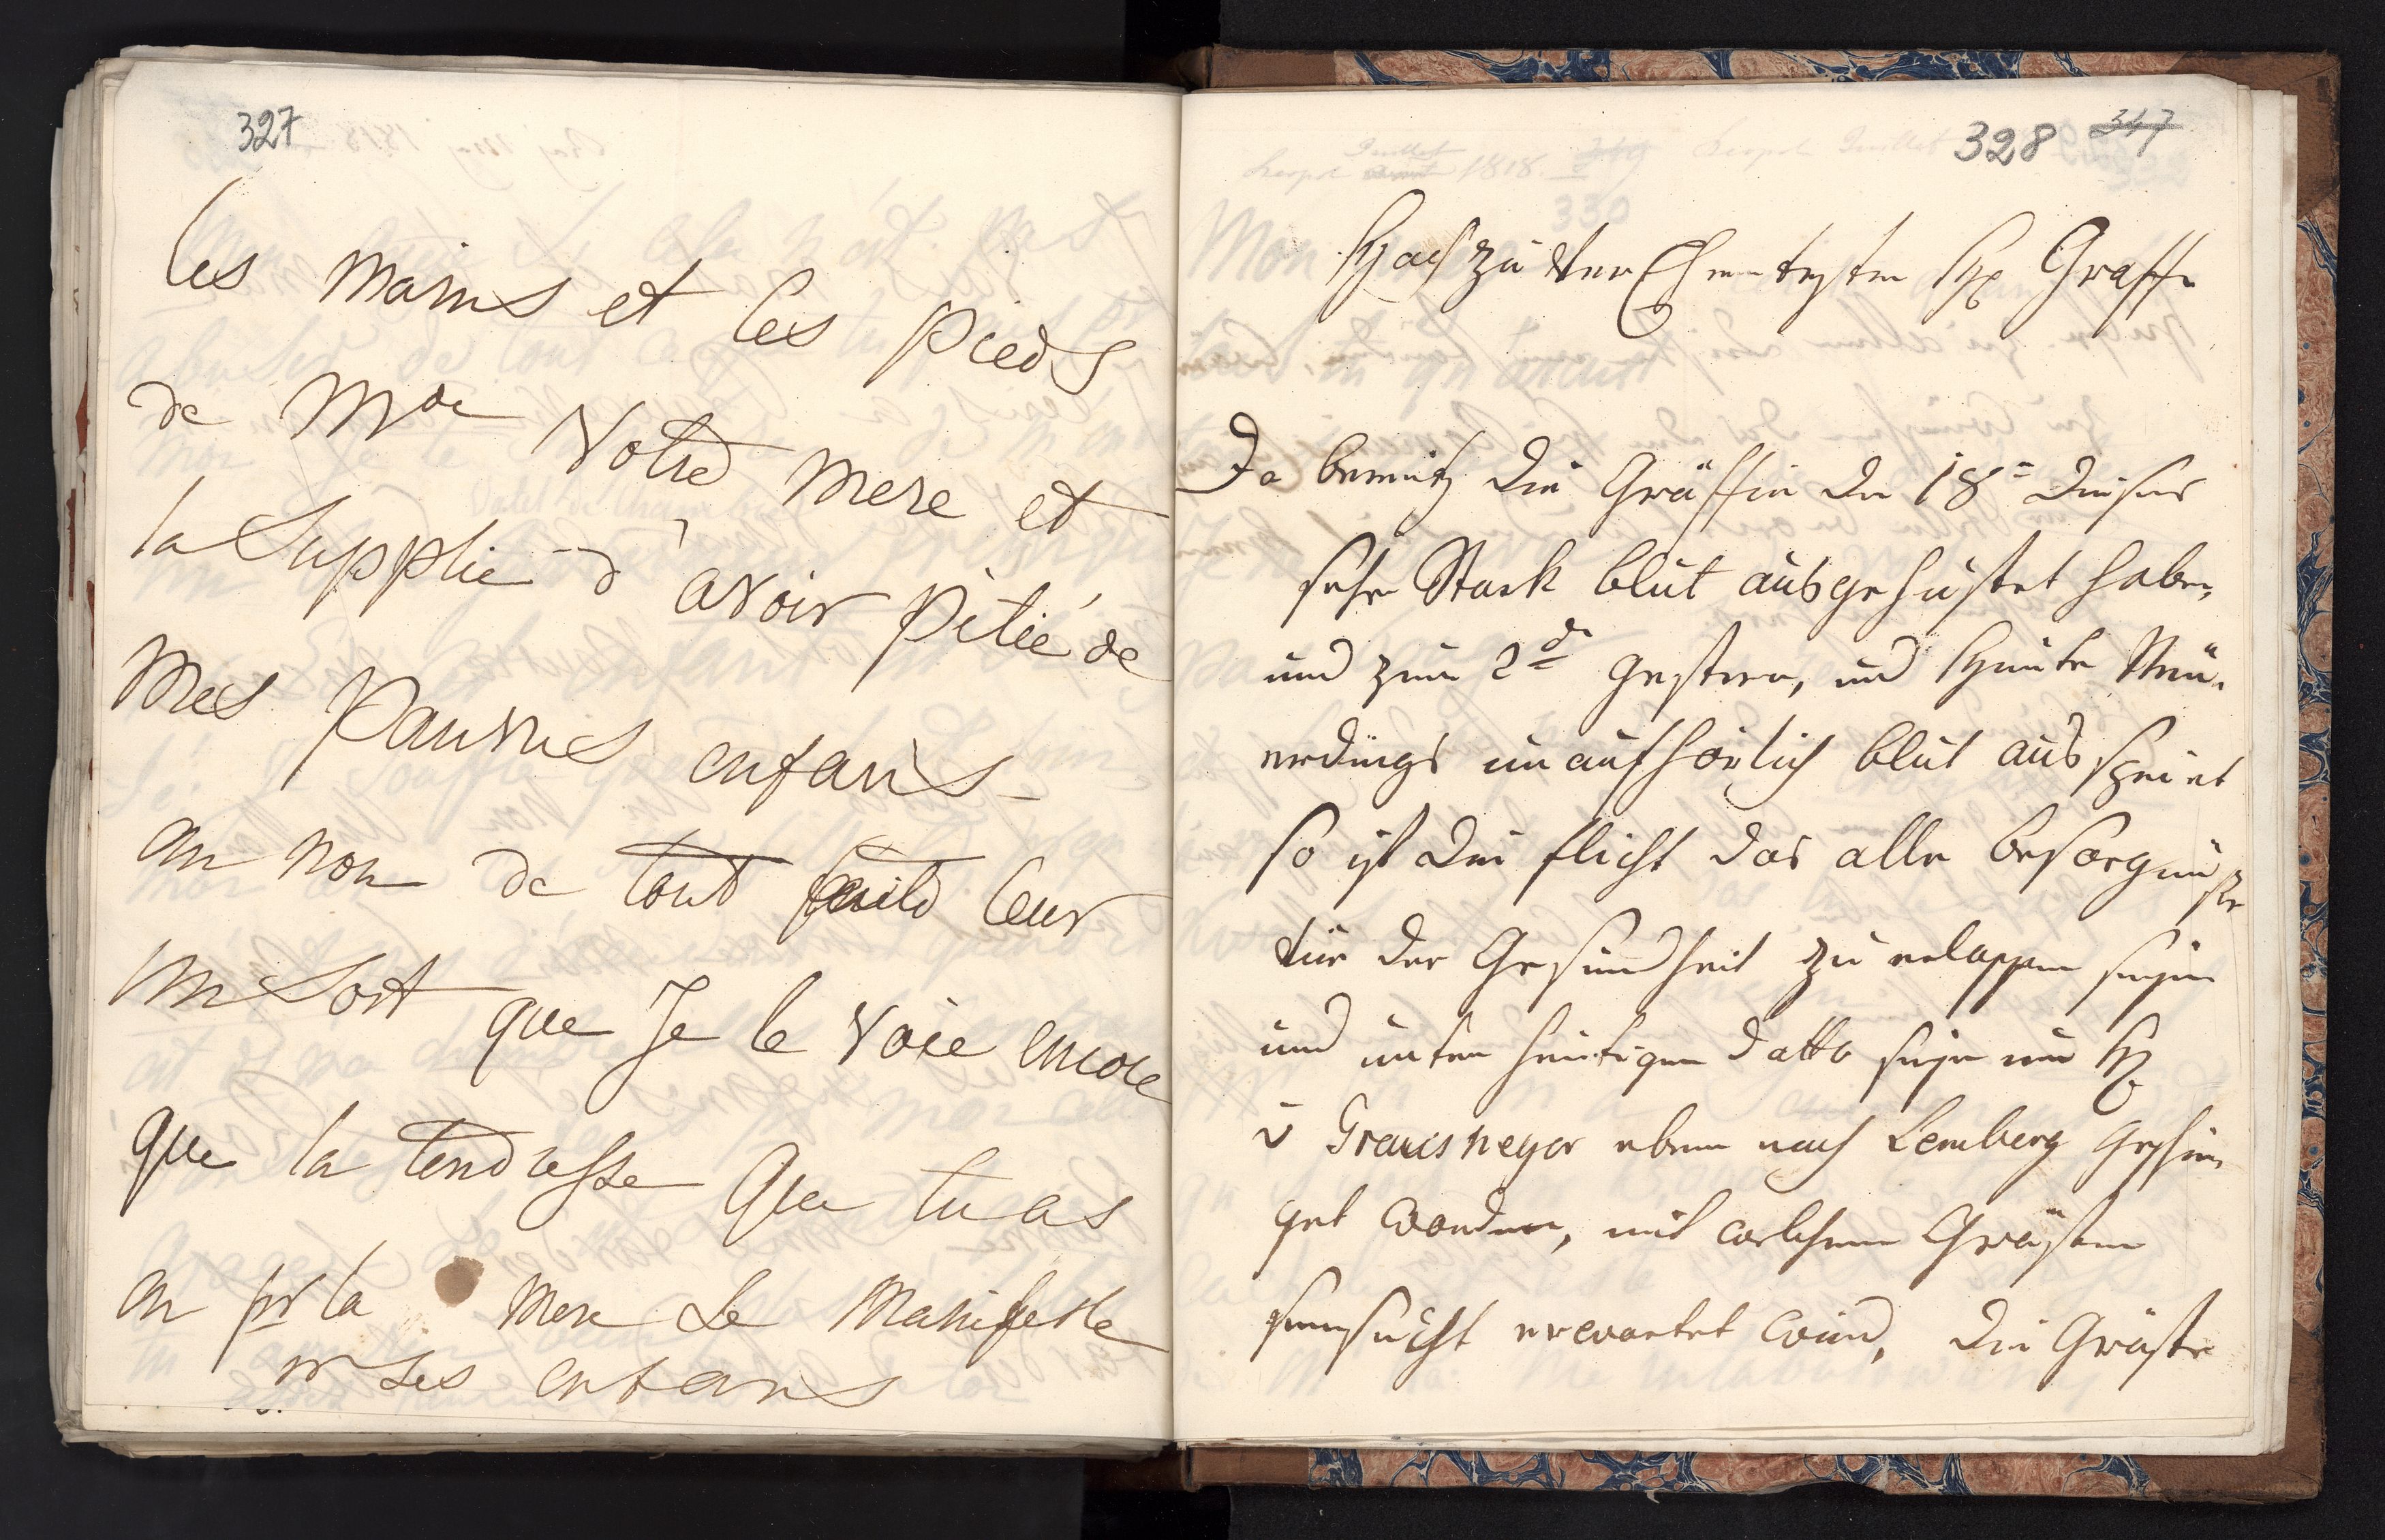 327
les mains et les pieds
de Mde Votre mere et
la Supplie d'avoir pitié de
Mes Pauvres enfans -
au nom de tout leur
un sort que Je le voie encore
que la tendresse Que tu as
en pr la mere se manifeste
pr ses enfans
328 347
Hochzuverehrentester H: Graff
Da bereits die Gräffin den 18n dieses
sehr Stark blut ausgehustet haben,
und zum 2dn gestern, und Heute Neu-
erdings unaufhörlich blut aus speiet
so ist die flicht das alle besorgnüße
für der Gesundheit zu
und unter heutigen datto seye H:
v eben nach Lemberg geschi-
ket worden, mit welchem Grösten
sensucht erwartet wird, die Gröste